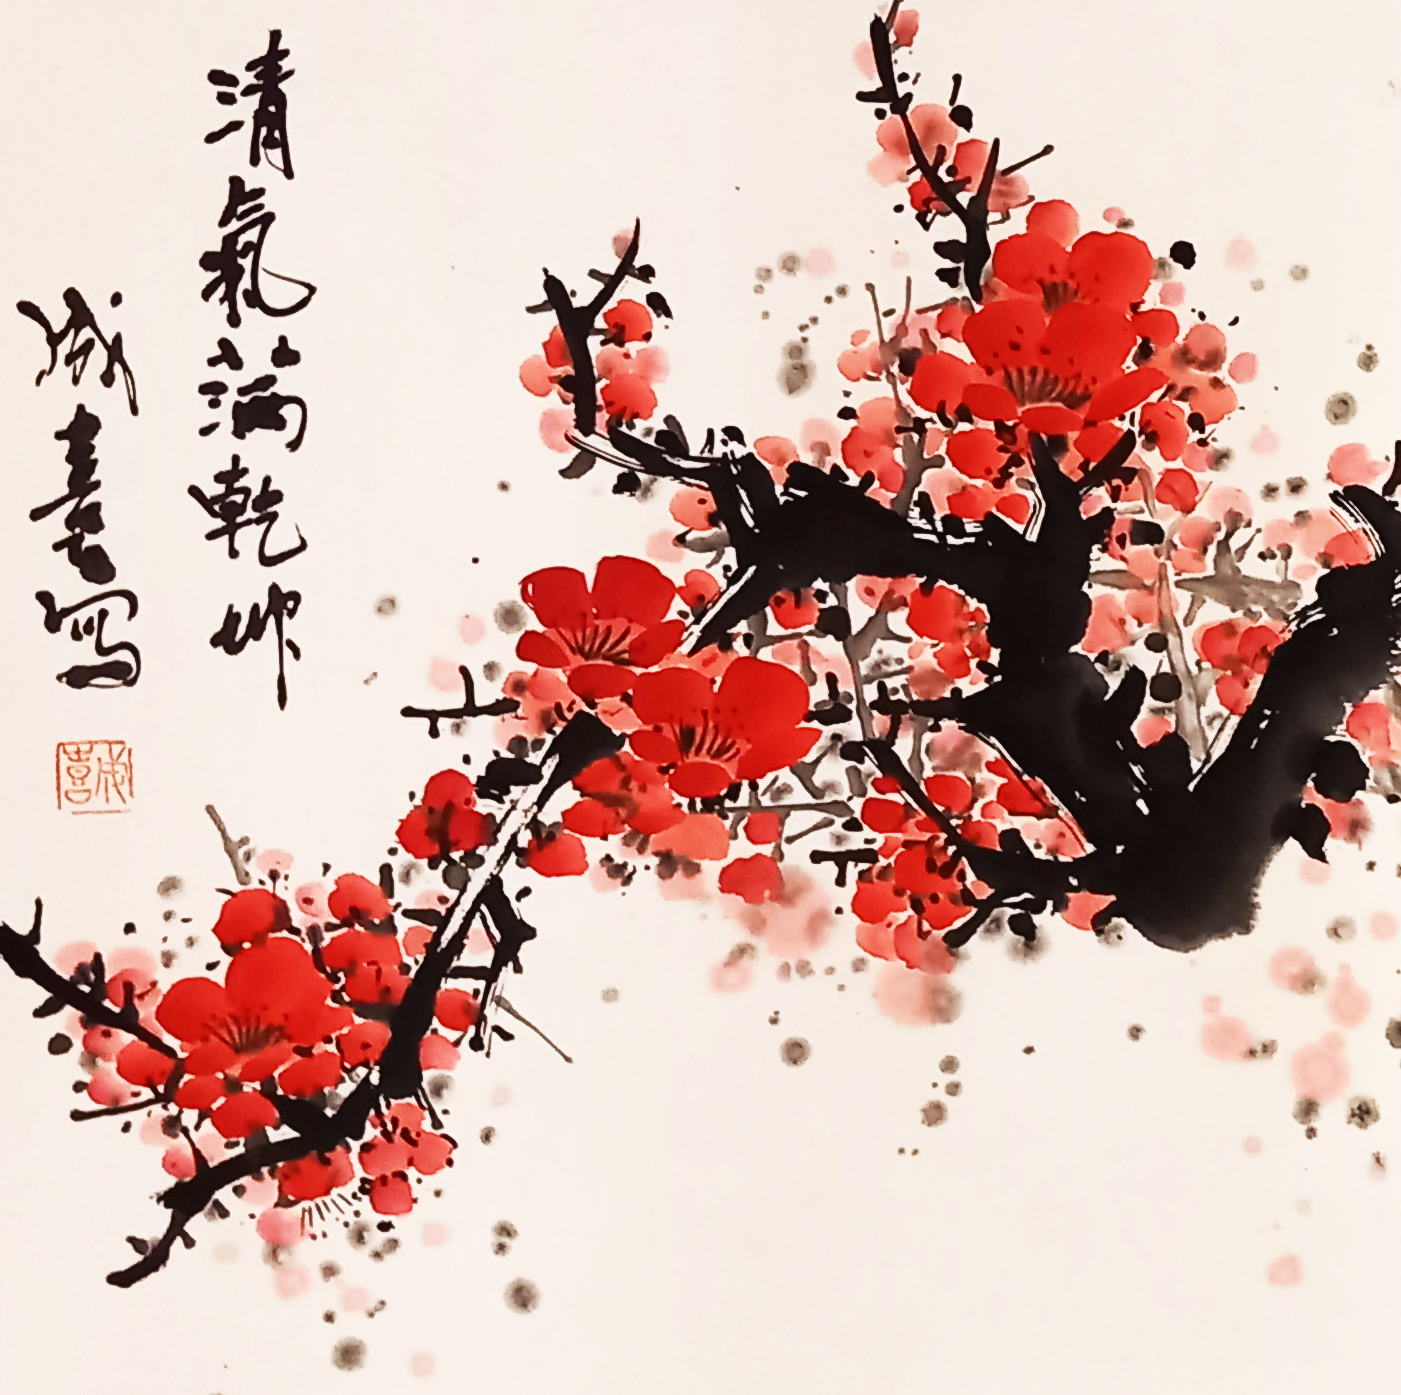 清氣滿乾坤
成喜寫
成喜